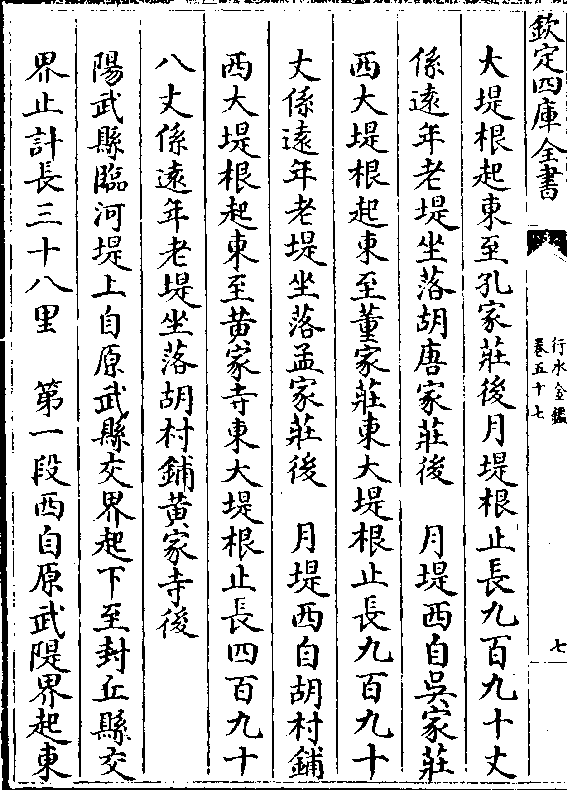 欽定四庫全書
行水金鑑
卷五十七
七
大堤根起東至孔家莊後月堤根止長九百九十丈
係遠年老堤坐落胡唐家莊後　月堤西自吳家莊
西大堤根起東至董家莊東大堤根止長九百九十
丈係遠年老堤坐落孟家莊後　月堤西自胡村鋪
西大堤根起東至黄家寺東大堤根止長四百九十
八丈係遠年老堤坐落胡村鋪黄家寺後
陽武縣臨河堤上自原武縣交界起下至封丘縣交
界止計長三十八里　第一段西自原武隄界起東